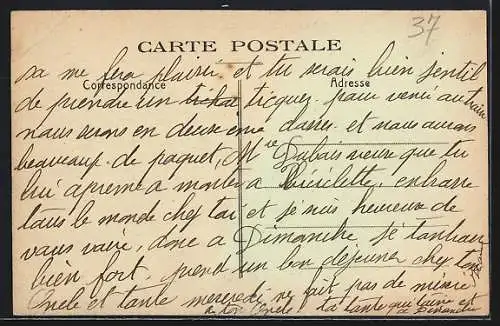 37
CARTE POSTALE
Correspondance
Adresse
sa me fera plaisir et tu serais bien jentil
de prendre un tichai ticquez pour venir au train
nous serons en deuseieme classes et nous aurons
beaucoup de paquet, Mme Dubais veux que tu
lui aprenne a monter a Biciclette, enbrasse
tous le monde chez toi et je suis heureuse de
vous voire, donc a Dimanche je t'anbrasse
bien fort. prend un bon déjeuner chez ton
Oncle et tante mercredi ne fait pas de misère
a ton Oncle ta tante qui t'aime et
a Dimanche